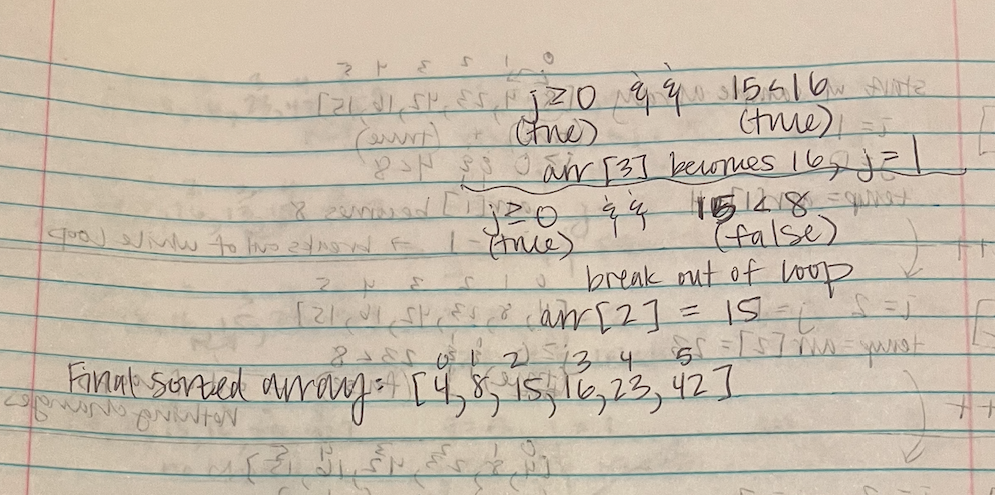 j ≥ 0 && 15 < 16
(true) (true)
arr [3] becomes 16, j = 1
j ≥ 0 && 15 < 8
(true) (false)
break out of loop
arr [2] = 15
0 1 2 3 4 5
Final sorted array: [4, 8, 15, 16, 23, 42]